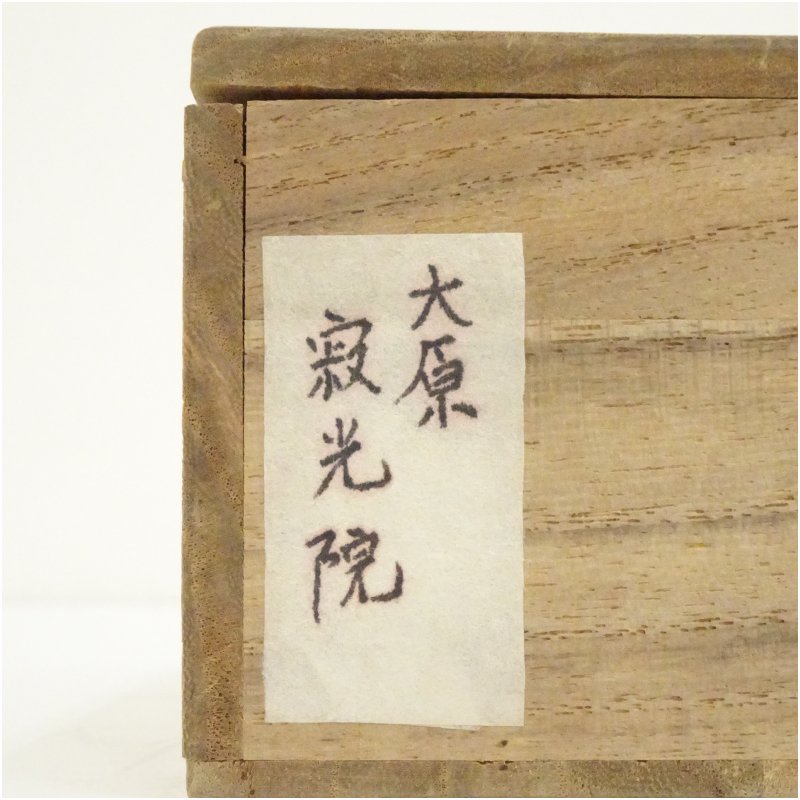 大原
寂光院